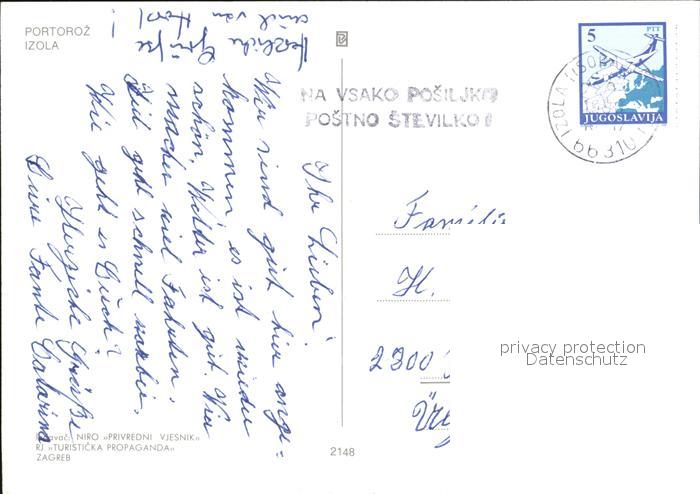 PORTOROŽ
IZOLA
Herzliche
Grüße
auch von
!
Ihr Lieben!
Wir sind gut hier ange=
kommen, es ist wieder
schön, Wetter ist gut. Wir
machen viel Fahrten.
Zeit geht schnell vorbei.
Wie geht es Euch?
Herzliche Grüße
Eure Tante Catarina
NIRO »PRIVREDNI VJESNIK«
RJ »TURISTIČKA PROPAGANDA«
ZAGREB
2148
NA VSAKO POŠILJKO
POŠTNO ŠTEVILKO!
5
PTT
JUGOSLAVIJA
IZOLA ISOLA
66310
Familie
H.
2300
privacy protection
Datenschutz